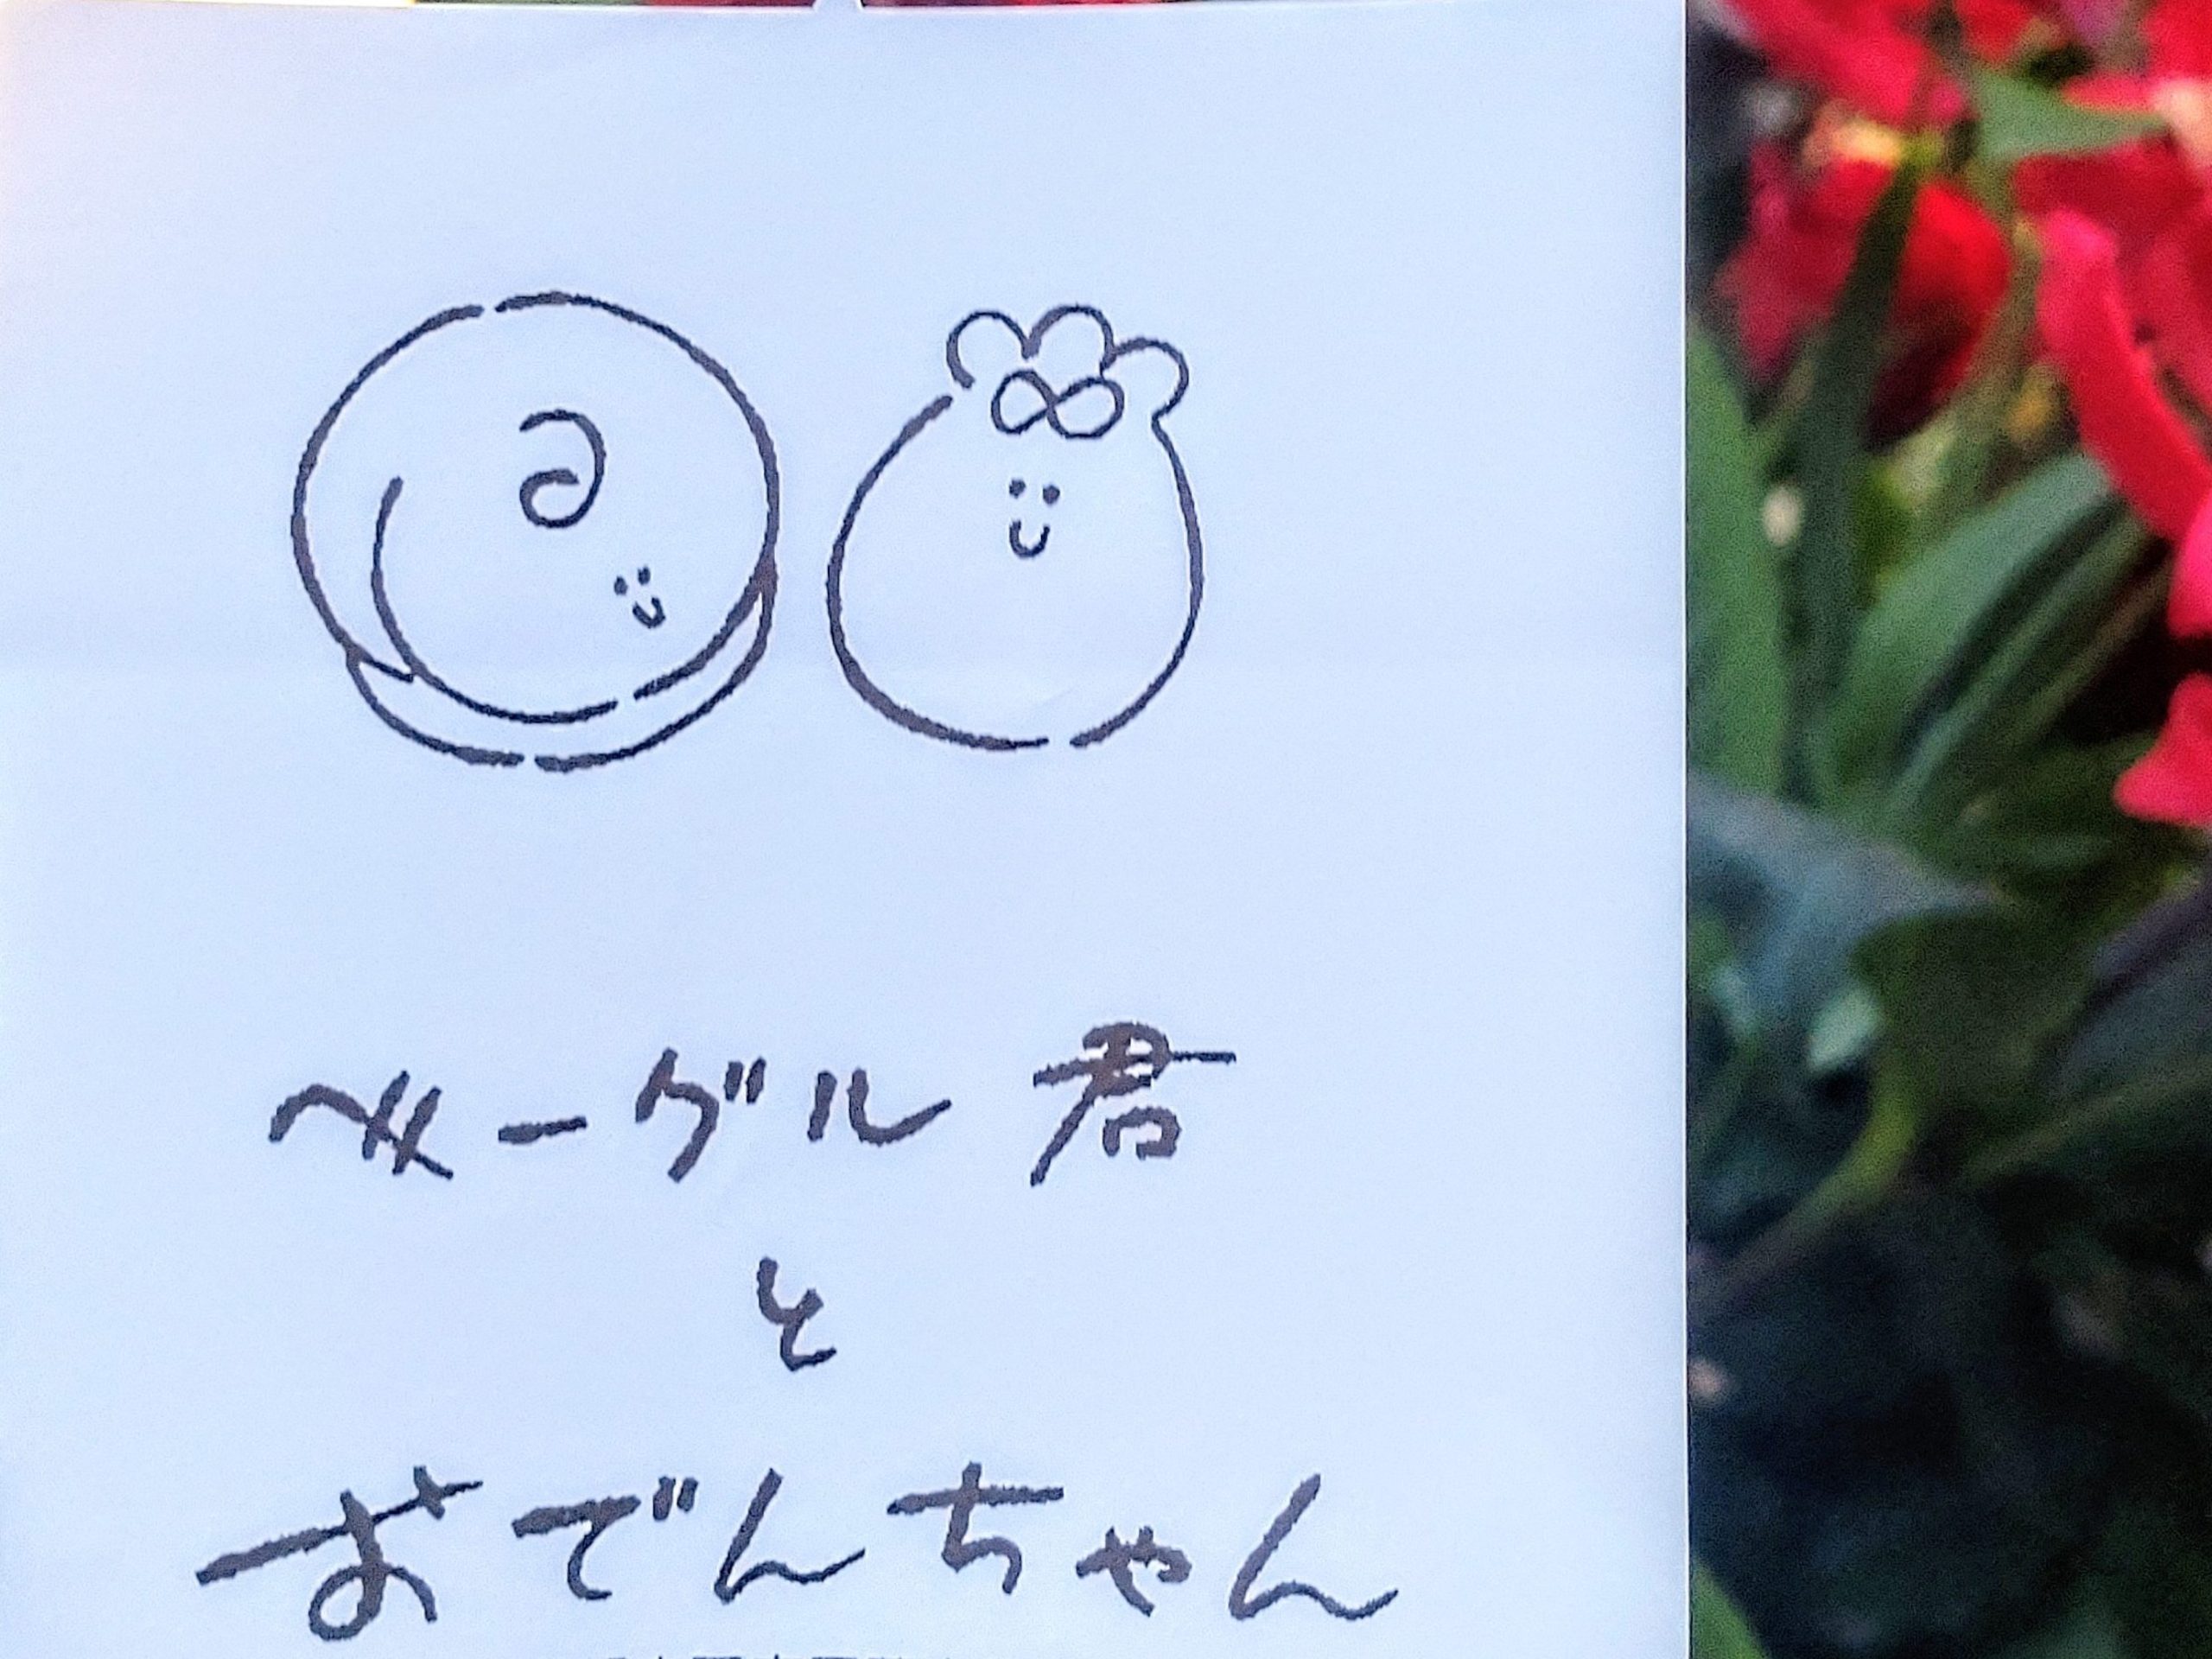 ベーグル君
と
おでんちゃん